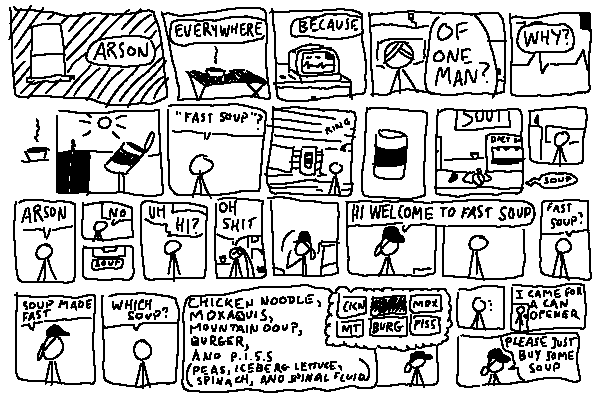 ARSON
EVERYWHERE
BECAUSE
OF
ONE
MAN?
WHY?
"FAST SOUP"?
RING
SOUP
SOUP
ARSON
NO
SOUP
UH
HI?
OH
SHIT
HI WELCOME TO FAST SOUP
FAST
SOUP?
SOUP MADE
FAST
WHICH
SOUP?
CHICKEN NOODLE,
MOXAQUIS,
MOUNTAIN OOUP,
BURGER,
AND P.I.S.S
(PEAS, ICEBERG LETTUCE,
SPINACH, AND SPINAL FLUID)
CKN
MOX
MT
BURG
PISS
I CAME FOR
A CAN
OPENER
PLEASE JUST
BUY SOME
SOUP